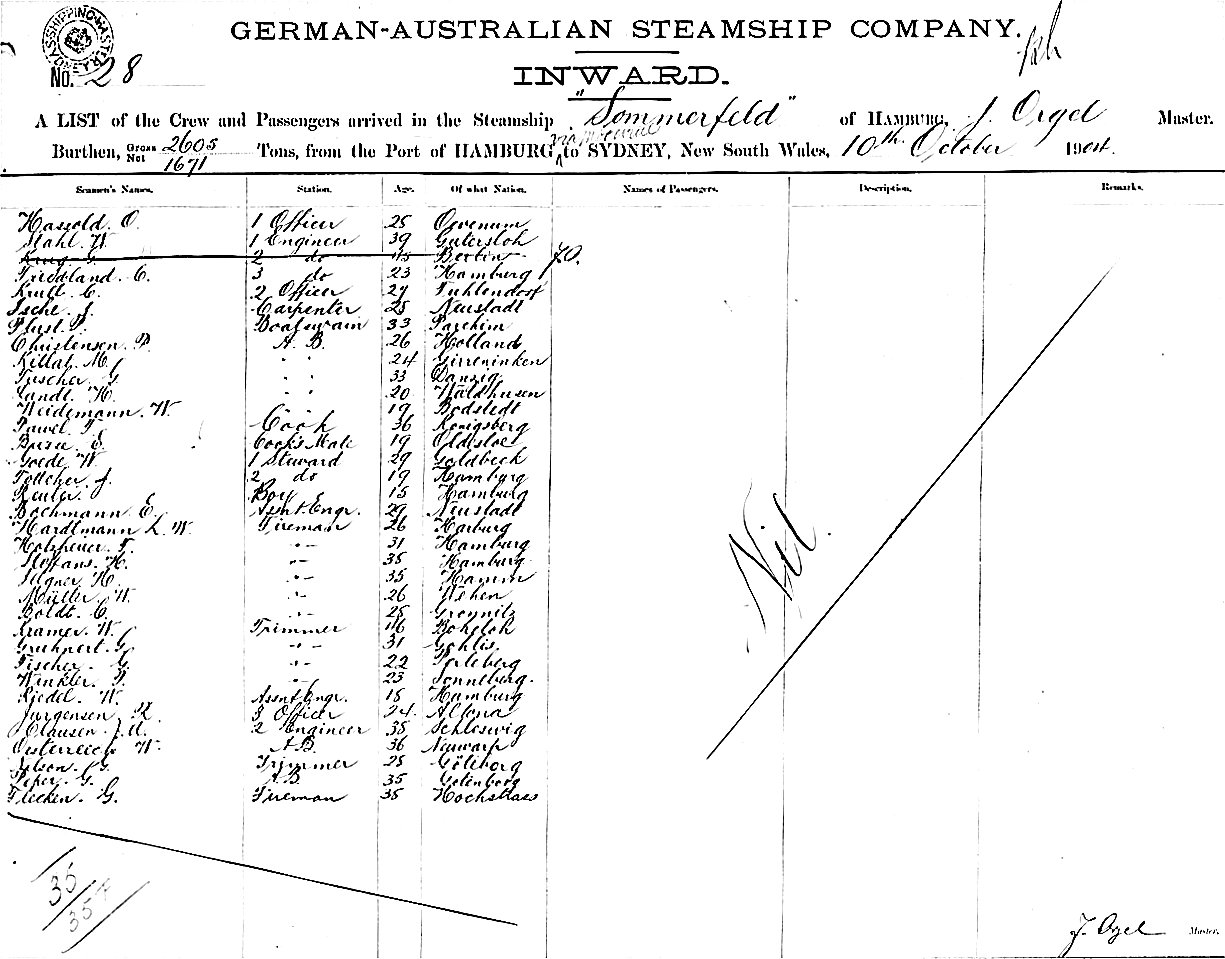 SHIPPING MASTER
GERMAN-AUSTRALIAN STEAMSHIP COMPANY.
No. 28
INWARD.
A LIST of the Crew and Passengers arrived in the Steamship "Sommerfeld" of HAMBURG, J. Orgel Master.
Burthen, Gross 2605 Net 1671 Tons, from the Port of HAMBURG to SYDNEY, New South Wales, 10th October 1904.
Seamen's Names. Station. Age. Of what Nation. Names of Passengers. Description. Remarks.
Hassold. O. 1 Officer 25 Oevenum
Stahl. W. 1 Engineer 39 Gütersloh
Krug. G. 2 do 45 Berlin
Friedland. C. 3 do 23 Hamburg
Krull. C. 2 Officer 27 Fuhlendorf
Ische. J. Carpenter 25 Neustadt
Plust. P. Boatswain 33 Parchim
Christensen. P. A. B. 26 Holland
Killat. M. " " 24 Girreninken
Fischer. G. " " 33 Danzig
Landt. H. " " 20 Waldhusen
Weidemann. W. 19 Bodstedt
Pawel. F. Cook 36 Königsberg
E. Cooks Mate 19 Oldesloe
Goede. W. 1 Steward 29 Goldbeck
Föttcher. J. 2 do 19 Hamburg
Reuter. J. Boy 15 Hamburg
Bochmann. E. Assnt Engr. 29 Neustadt
Hardtmann L. W. Fireman 26 Harburg
Holzheuer. F. " 31 Hamburg
Stoffans. H. " 35 Hamburg
Illgner. H. " 35 Hamm
Müller. W. " 26 Wehen
Boldt. C. " 25
Kramer. W. Trimmer 46
Gruhnert. G. " 31 Gohlis.
Fischer. G. " 22 Perleberg
Winkler. P. " 23 Sonneberg.
Riedel. W. Assnt Engr. 18 Hamburg
Jürgensen. K. 3 Officer 24. Altona
Clausen. J. A. 2 Engineer 38 Schleswig
Oesterreich W. A.B. 36 Neuwarp
G. Trimmer 25 Göteborg
Peper. G. A.B. 35 Gotenborg
Flecken. G. Fireman 38 Hochstrass
Nil.
36
35
J. Orgel Master.